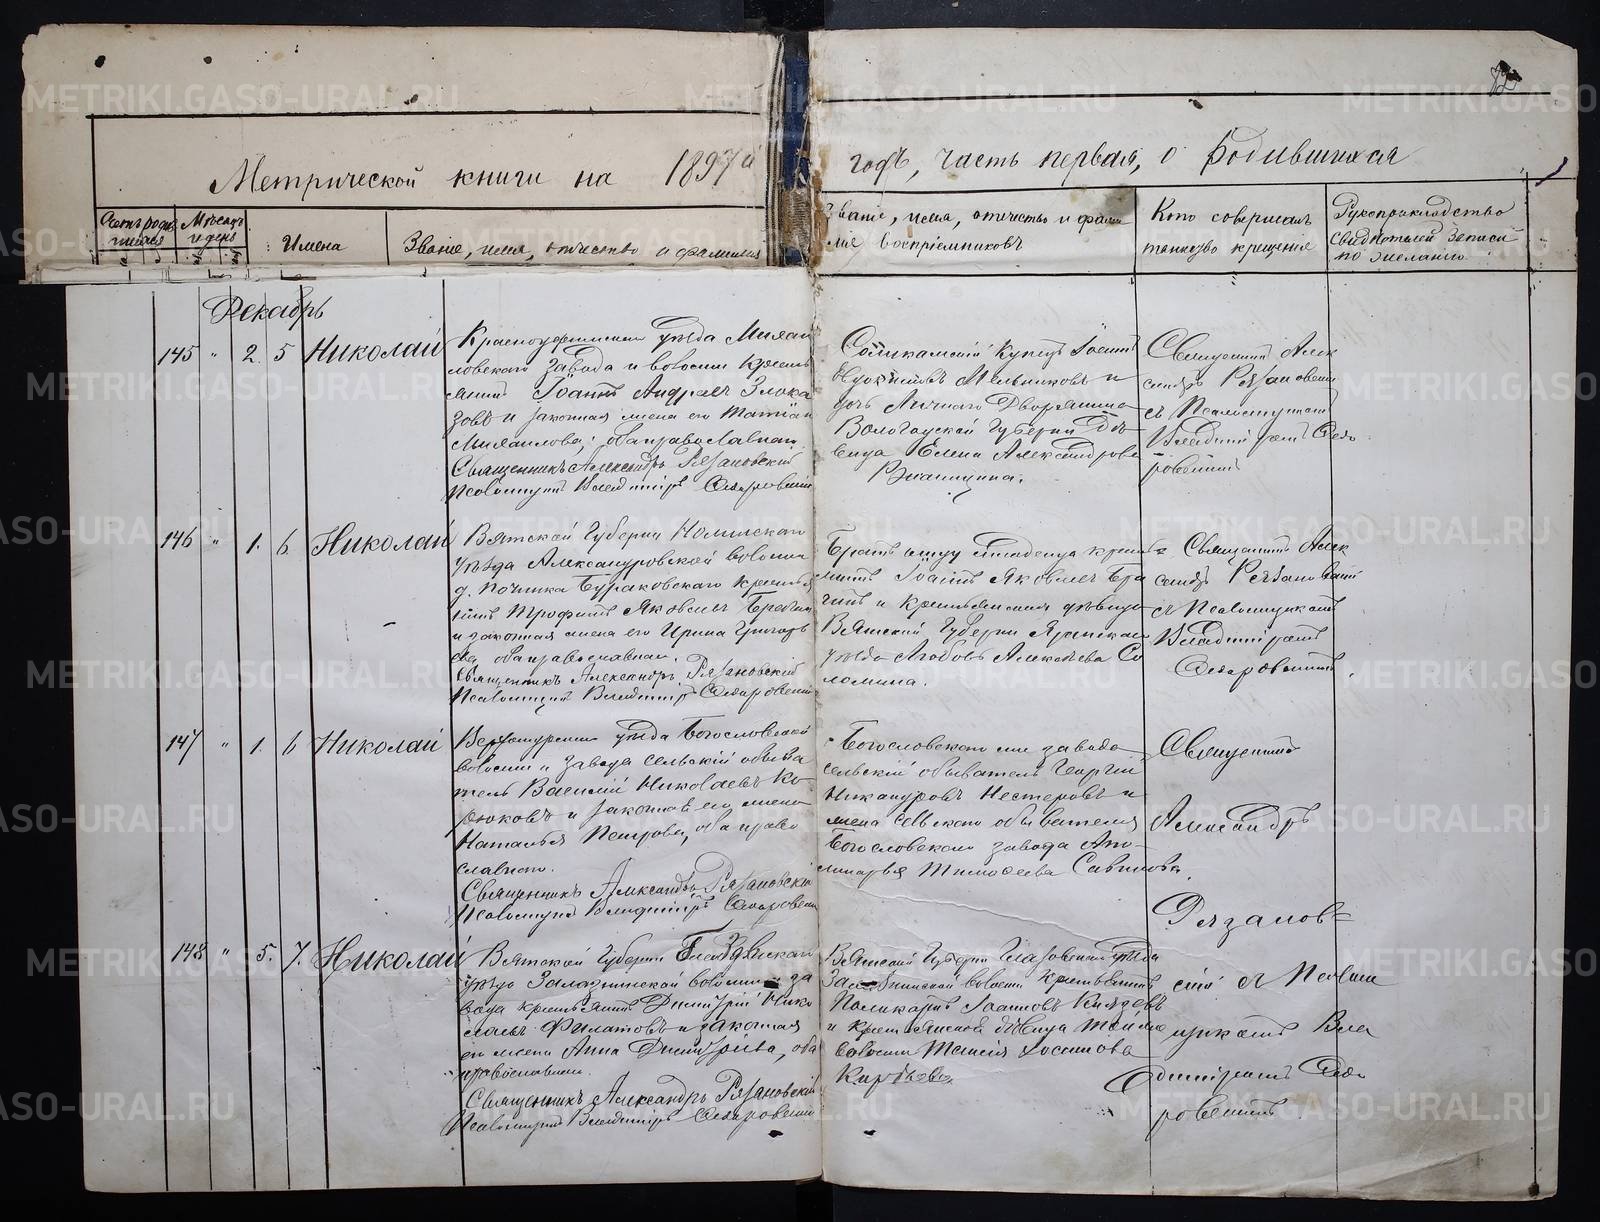 72
Метрической книги на 1897й
годъ, часть первая, о родившихся
Счетъ родив Мѣсяцъ
шихся и день
Имена
Званіе, имя, отчество и фамилія
Званіе, имя, отчество и фами
лія воспріемниковъ
Кто совершалъ
таинство крещенія
Рукоприкладство
свидѣтелей записи
по желанію
Декабрь
145 " 2 5 Николай
Красноуфимскаго уѣзда Михай
ловскаго завода и волости крестья
нинъ Іоаннъ Андреевъ Злока
зовъ и законная жена его Татіана
Михаилова, оба православные.
Священникъ Александръ Рязановскій
Псаломщикъ Владиміръ
Соликамскій купецъ Іоаннъ
Мельниковъ и
дочь Личнаго Дворянина
Вологодской Губерніи Дѣ
вица Елена Александрова
Священникъ Алек
сандръ Рязановскій
съ Псаломщикомъ
Владиміромъ
146 " 1. 6. Николай
Вятской Губерніи Нолинскаго
уѣзда Александровской волости
д. Починка Бураковскаго крестья
нинъ Трофимъ Яковлевъ
и законная жена его Ирина Григорье
ва, оба православные.
Священникъ Александръ Рязановскій
Псаломщикъ Владиміръ
Братъ отцу младенца кресть
янинъ Іоаннъ Яковлевъ
и крестьянская дѣвица
Вятской Губерніи Яранскаго
уѣзда Любовь Алексѣева Со
ломина.
Священникъ Алек
сандръ Рязановскій
съ Псаломщикомъ
Владиміромъ
147 " 1. 6 Николай
Верхотурскаго уѣзда Богословской
волости и завода сельскій обыва
тель Василій Николаевъ Ко
рюковъ и законная его жена
Наталья Петрова, оба право
славные.
Священникъ Александръ Рязановскій
Псаломщикъ Владиміръ
Богословскаго завода
сельскій обыватель Георгій
Никаноровъ Нестеровъ и
жена сельскаго обывателя
Богословскаго завода Апо
линарья Тимофеева Савинова.
Священникъ
Александръ
Рязанов=
148 " 5. 7. Николай
Вятской Губерніи Глазовскаго
уѣзда Залазнинской волости и за
вода крестьянинъ Димитрій Нико
лаевъ Филатовъ и законная
его жена Анна Димитріева, оба
православные.
Священникъ Александръ Рязановскій
Псаломщикъ Владиміръ
Вятской Губерніи Глазовскаго уѣзда
Залазнинской волости крестьянинъ
Поликарпъ Іоанновъ Князевъ
и крестьянская дѣвица той же
волости Таисія Іоаннова
скій съ Псалом
щикомъ Вла
диміромъ